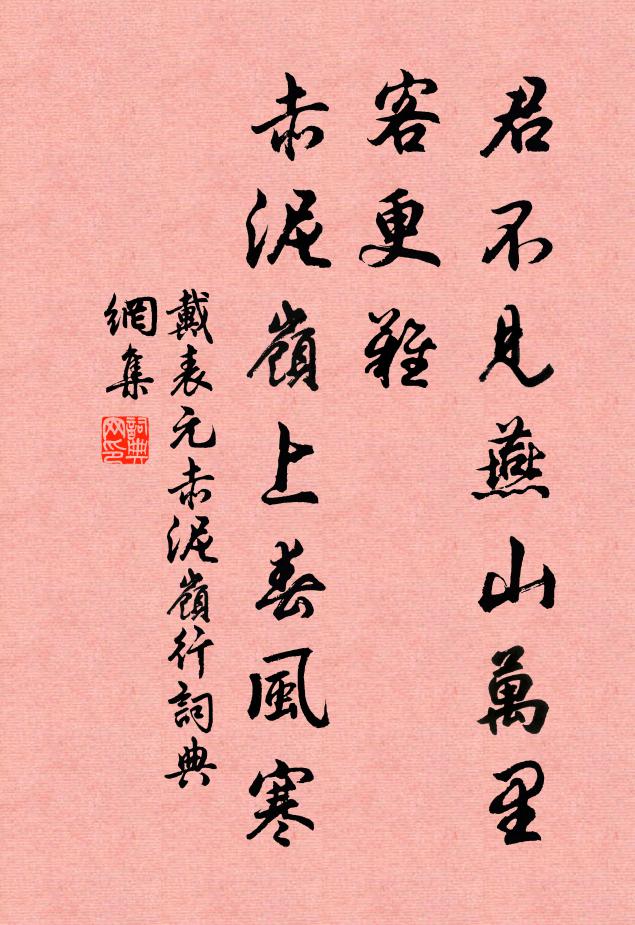 君不見燕山萬里
客更難
赤泥嶺上春風寒
戴表元赤泥嶺行詞典
網集
詞典
网印